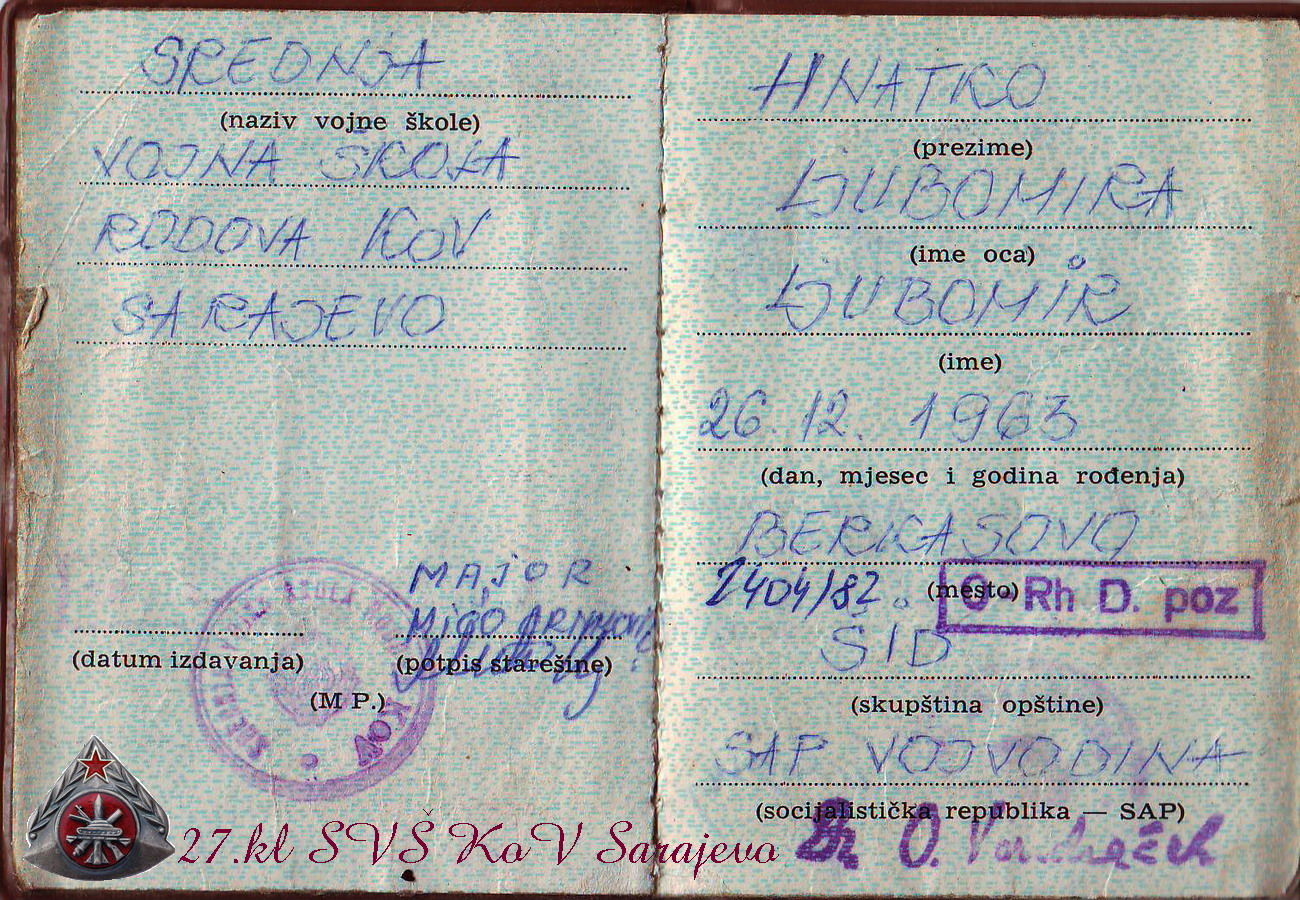 SREDNJA
(naziv vojne škole)
VOJNA ŠKOLA
RODOVA KOV
SARAJEVO
MAJOR
MIĆO
(datum izdavanja)
(potpis starešine)
(M P.)
KOV
27.kl SVŠ KoV Sarajevo
HNATKO
(prezime)
LJUBOMIRA
(ime oca)
LJUBOMIR
(ime)
26. 12. 1963
(dan, mjesec i godina rođenja)
BERKASOVO
2404/82. (mesto) O Rh D. poz
ŠID
(skupština opštine)
SAP VOJVODINA
(socijalistička republika — SAP)
Dr O.